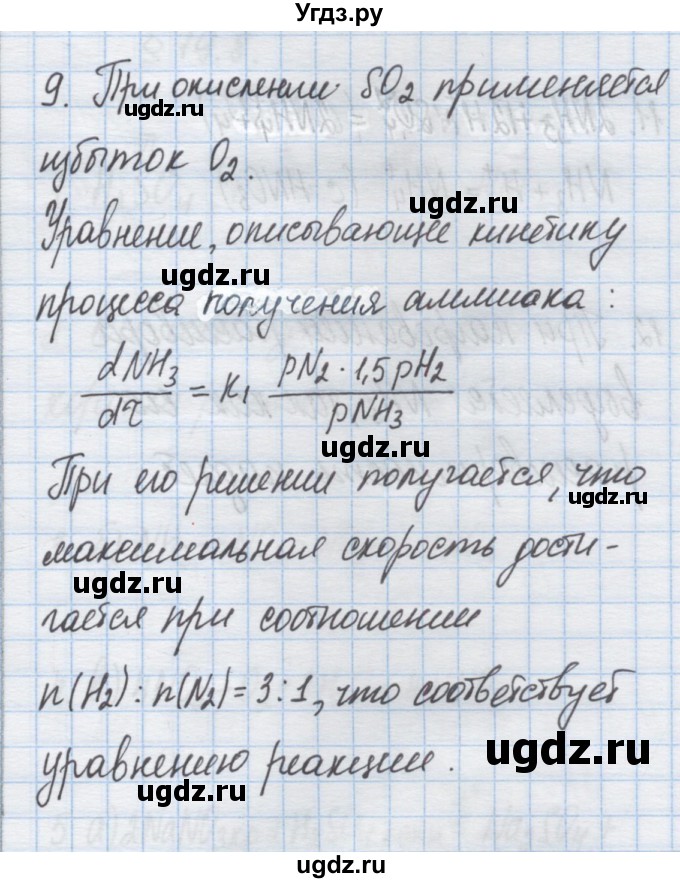 Угдз.ру
9. При окислении SO2 применяется
ugdz.ru
избыток O2.
ugdz.ru
Уравнение, описывающее кинетику
ugdz.ru
процесса получения аммиака:
dNH3/dτ = K1 pN2 · 1,5 pH2/pNH3
ugdz.ru
При его решении получается, что
ugdz.ru
максимальная скорость дости-
ugdz.ru
гается при соотношении
n(H2) : n(N2) = 3 : 1, что соответствует
ugdz.ru
уравнению реакции.
ugdz.ru
ugdz.ru